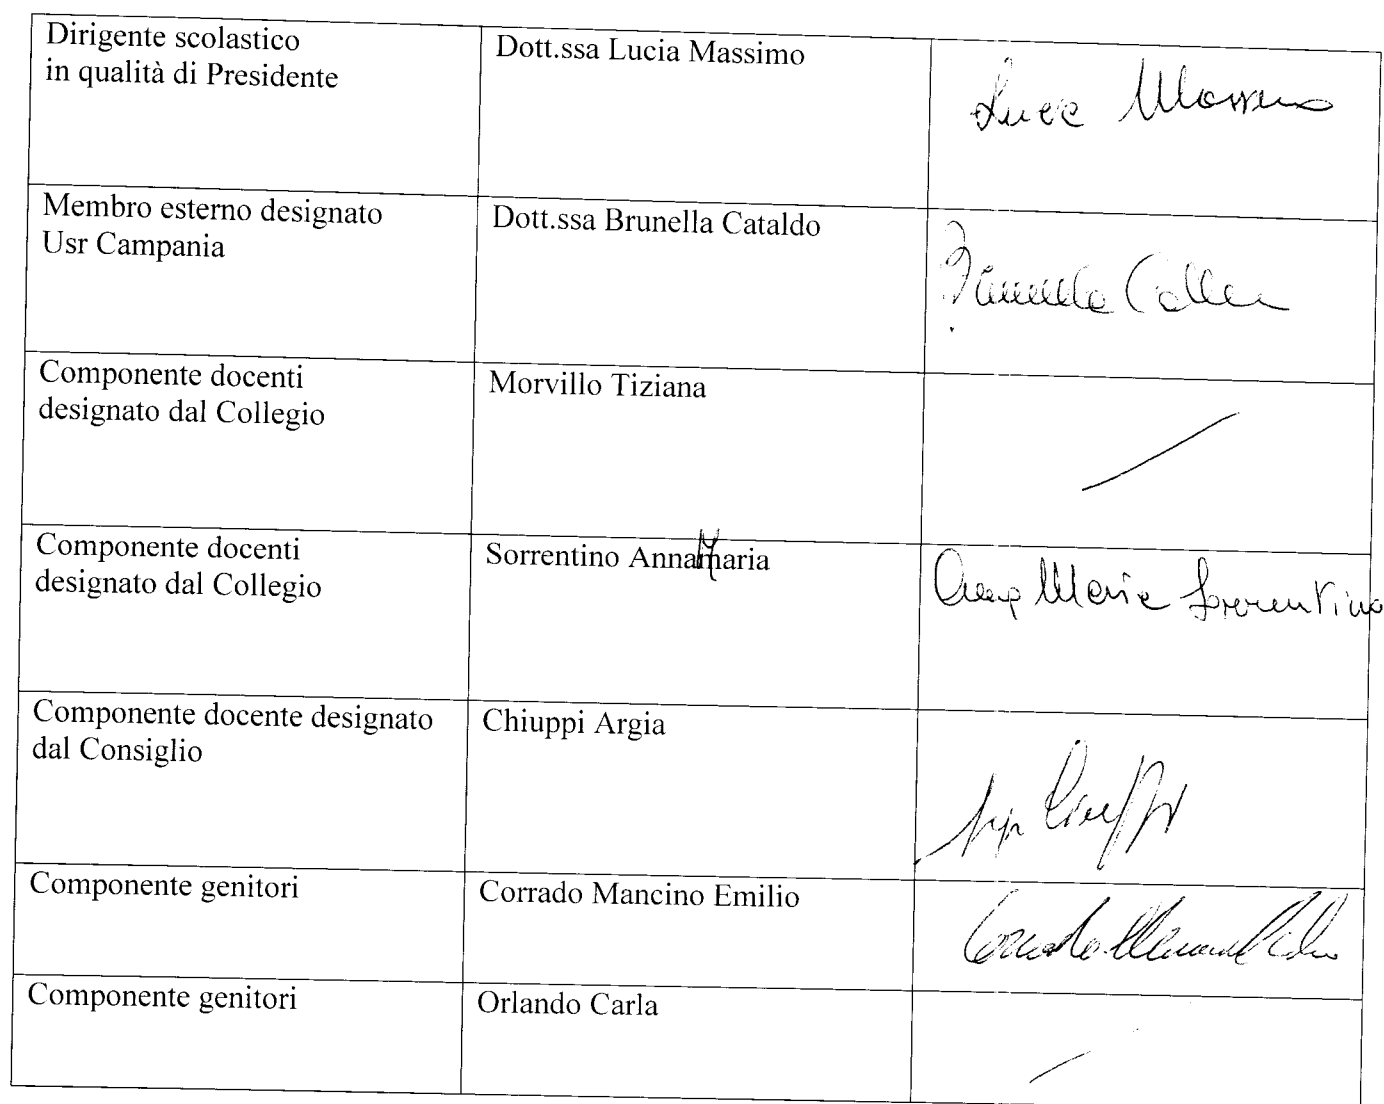 Dirigente scolastico
in qualità di Presidente
Dott.ssa Lucia Massimo
Luca Massimo
Membro esterno designato
Usr Campania
Dott.ssa Brunella Cataldo
Componente docenti
designato dal Collegio
Morvillo Tiziana
Componente docenti
designato dal Collegio
Sorrentino AnnaMaria
Anna Maria Sorrentino
Componente docente designato
dal Consiglio
Chiuppi Argia
Componente genitori
Corrado Mancino Emilio
Componente genitori
Orlando Carla